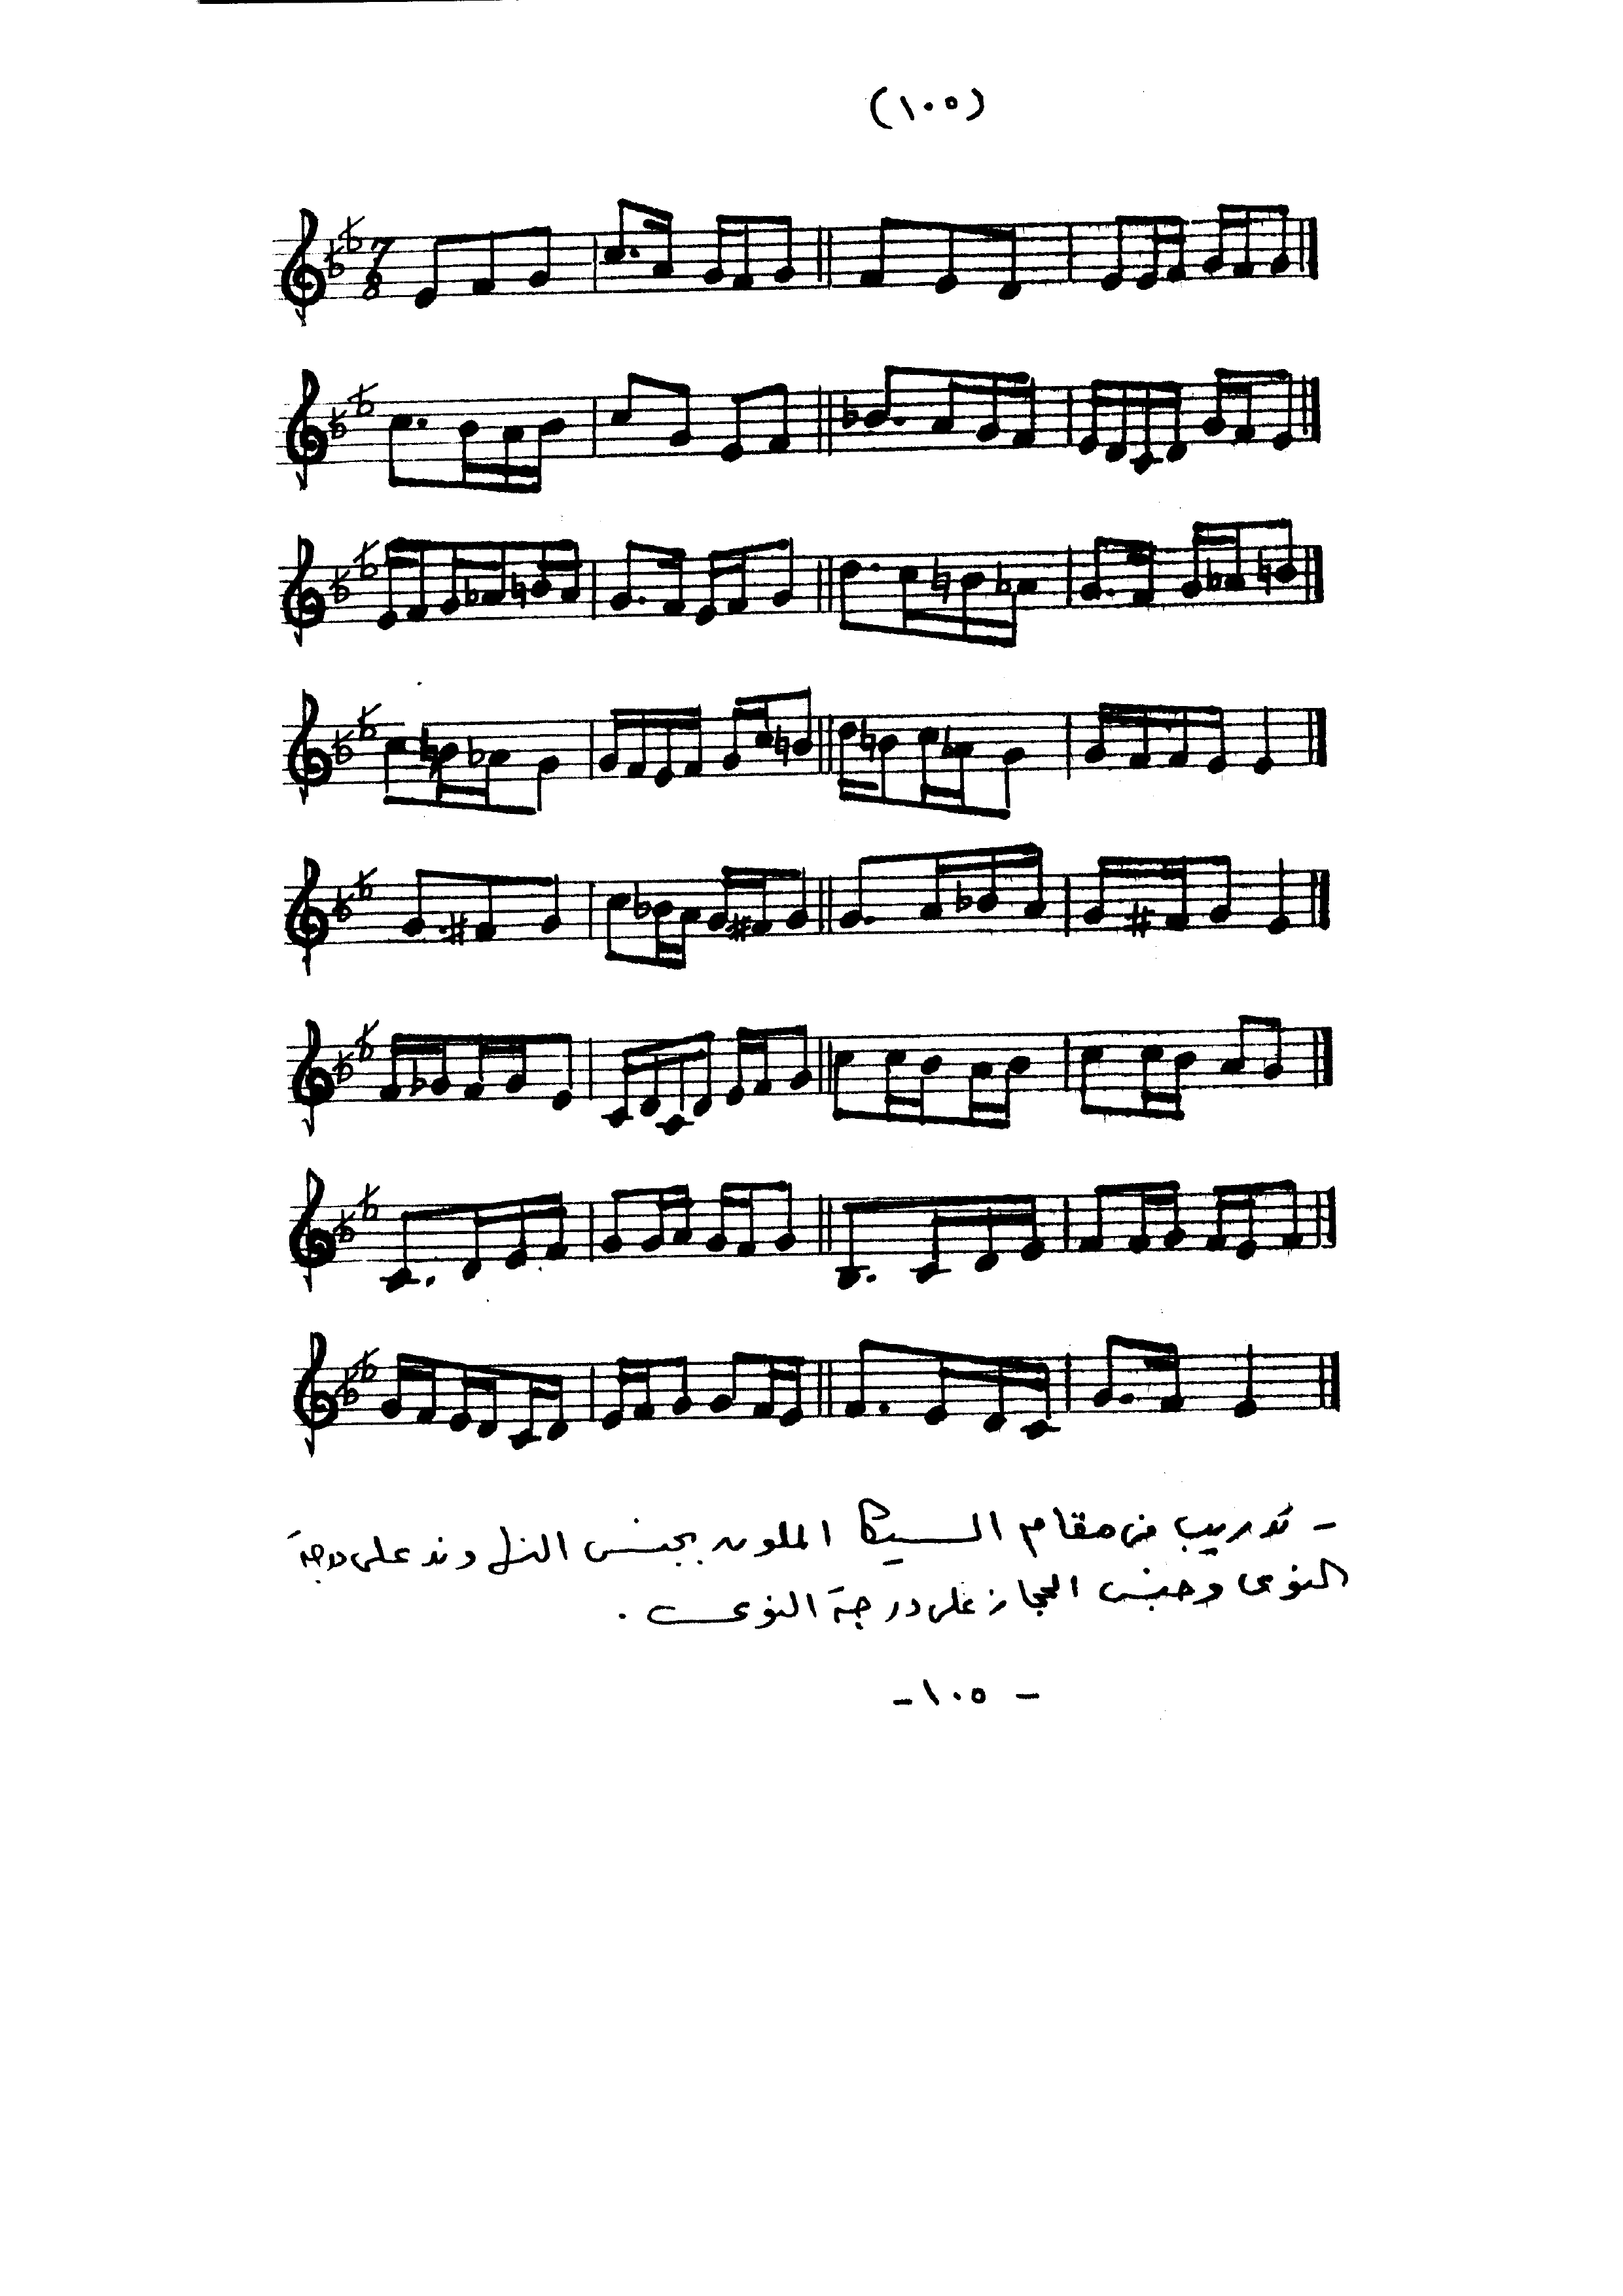 (١٠٥)
7
8
- تدريب من مقام السيكا الملون بجنس النهاوند على درجة
النوى وجنس الحجاز على درجة النوى .
- ١٠٥ -